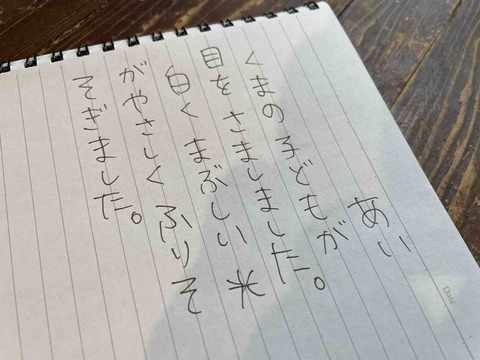 Date
あい
くまの子どもが
目をさましました。
白くまぶしい光
がやさしくふりそ
そぎました。